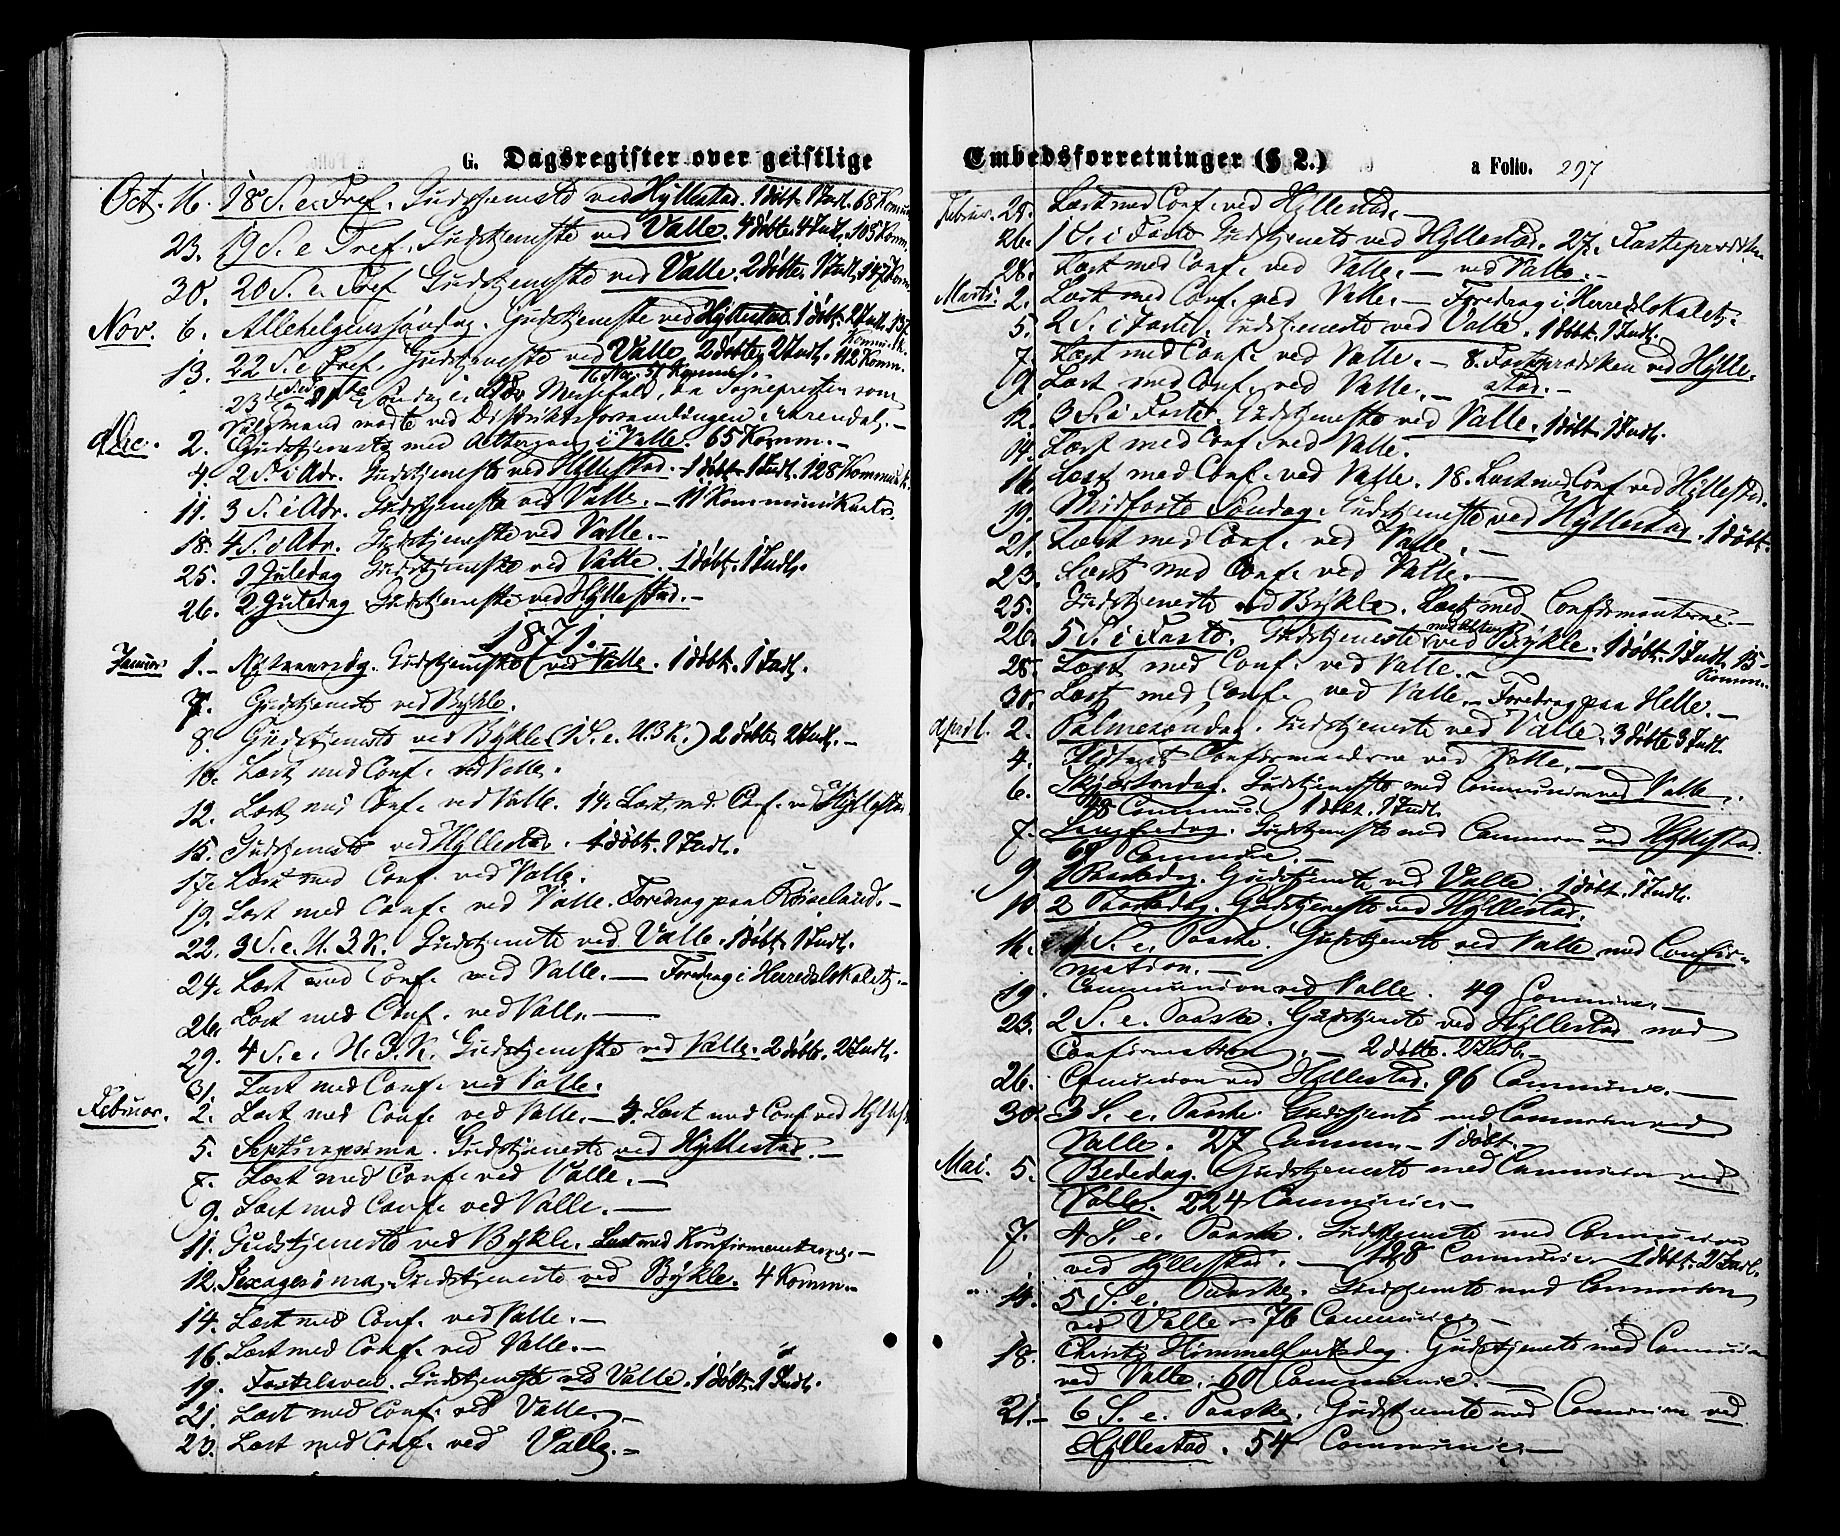 G. Dagsregister over geistlige
Oct. 16. 18 S. e. Tref. Gudstjeneste ved Hyllestad. 1 døbt. 1 Indl. 68 Kommu
23. 19 S. e Tref. Gudstjeneste ved Valle. 4 døbte. 4 Indl. 105 Komm.
30. 20 S. e. Tref Gudstjeneste ved Valle. 2 døbte. 1 Indl. 147 Komm
Nov. 6. Allehelgenssøndag. Gudstjeneste ved Hyllestad. 1 døbt. 2 Indl. 137
Kommunik.
13. 22 S. e Tref. Gudstjeneste ved Valle. 2 døbte. 2 Indl. 112 Komm.
16 Nov. 51 Kommun.
23 Søndag i Forfald, da Sognepresten som
Valgmand mødte ved Distriktsforsamlingen i Arendal. —
Dbe. 2. Gudstjeneste med Altergang i Valle. 65 Komm. —
4. 2 S. i Adv. Gudstjeneste ved Hyllestad. — 1 døbt. 1 Indl. 128 Kommunik.
11. 3 S. i Adv. Gudstjeneste ved Valle. — 11 Kommunikanter.
18. 4 S. i Adv. Gudstjeneste ved Valle. —
25. 1 Juledag Gudstjeneste ved Valle. 1 døbt. 1 Indl.
26. 2 Juledag Gudstjeneste ved Hyllestad. —
1871.
Januar 1. — Nytaarsdag. Gudstjeneste ved Valle. 1 døbt. 1 Indl.
7. Gudstjeneste ved Bykle.
8. Gudstjeneste ved Bykle (1 S. e. H. 3 K.) 2 døbte. 2 Indl. —
10. Læst med Conf. ved Valle.
12. Læst med Conf. ved Valle. 14. Læst med Conf. ved Hyllestad
15. Gudstjeneste ved Hyllestad. 1 døbt. 1 Indl.
17. Læst med Conf. ved Valle.
19. Læst med Conf. ved Valle. Foredrag paa Röiseland. —
22. 3 S. e. H. 3 K. Gudstjeneste ved Valle. 1 døbt. 1 Indl.
24. Læst med Conf. ved Valle. — Foredrag i Herredslokalet. —
26. Læst med Conf. ved Valle. —
29. 4 S. e. H. 3. K. Gudstjeneste ved Valle. 2 døbte. 2 Indl.
31. Læst med Conf. ved Valle.
Februar. 2. Læst med Conf. ved Valle. — 4. Læst med Conf ved Hyllest
5. Septuagesima. Gudstjeneste ved Hyllestad. —
7. Læst med Conf. ved Valle. —
9. Læst med Conf. ved Valle. —
11. Gudstjeneste ved Bykle. Læst med Konfirmanterne. —
12. Sexagesima. Gudstjeneste ved Bykle. 4 Komm. —
14. Læst med Conf. ved Valle. —
16. Læst med Conf. ved Valle. —
19. Fastelavn. Gudstjeneste ved Valle. 1 døbt. 1 Indl.
21. Læst med Conf. ved Valle. —
23. Læst med Conf. ved Valle. —
Embedsforretninger (§ 2.) a Folio. 297
Februar. 25. Læst med Conf. ved Hyllestad. —
26. 1 S. i Faste Gudstjeneste ved Hyllestad. 27. Fasteprædiken
28. Læst med Conf. ved Valle. — ved Valle. —
Marts. 2. Læst med Conf. ved Valle. — Foredrag i Herredslokalet. —
5. 2 S. i Faste. Gudstjeneste ved Valle. 1 døbt. 1 Indl.
7. Læst med Conf. ved Valle. — 8. Fasteprædiken ved Hylle-
9. Læst med Conf. ved Valle. — stad. —
12. 3 S. i Faste. Gudstjeneste ved Valle. 1 døbt. 1 Indl.
14. Læst med Conf. ved Valle.
16. Læst med Conf. ved Valle. 18. Læst med Conf ved Hyllestad.
19. Midfaste Søndag. Gudstjeneste ved Hyllestad. 1 døbt.
21. Læst med Conf. ved Valle. —
23. Læst med Conf. ved Valle. —
25. Gudstjeneste ved Bykle. Læst med Confirmanterne. —
26. 5 S. i Faste. Gudstjeneste med Alterg. ved Bykle. 1 døbt. 1 Indl. 15
Komm.
28. Læst med Conf. ved Valle. —
30. Læst med Conf. ved Valle. — Foredrag paa Helle. —
April. 2. Palmesøndag. Gudstjeneste ved Valle. 3 døbte 3 Indl.
4. Confirmanderne ved Valle. —
6. Skjærtorsdag. Gudstjeneste med Communion ved Valle.
Commun. 1 døbt. 1 Indl.
7. Langfredag. Gudstjeneste med Communion ved Hyllestad.
Commun. —
9. 1 Paaskedag. Gudstjeneste ved Valle. 1 døbt. 1 Indl.
10 2 Paaskedag. Gudstjeneste ved Hyllestad.
16. 1 S. e. Paaske. Gudstjeneste ved Valle med Confir-
mation. —
19. Communion ved Valle. 49 Commun. —
23. 2 S. e. Paaske. Gudstjeneste ved Hyllestad med
Confirmation. — 2 døbte. 2 Indl. —
26. Communion ved Hyllestad. 96 Commun. —
30. 3 S. e. Paaske. Gudstjeneste med Communion ved
Valle. 27 Commun. — 1 døbt. —
Mai. 5. Bededag. Gudstjeneste med Communion ved
Valle. 224 Communic. —
7. 4 S. e. Paaske. Gudstjeneste med Communion
ved Hyllestad. — 128 Communic. 1 døbt. 2 Indl.
14. 5 S. e. Paaske. Gudstjeneste med Communion
ved Valle. — 76 Communic. —
18. Christi Himmelfartsdag. Gudstjeneste med Communion
ved Valle. 60 Communic. —
21. — 6 S. e. Paaske. Gudstjeneste med Communion ved
Hyllestad. 54 Communic. —